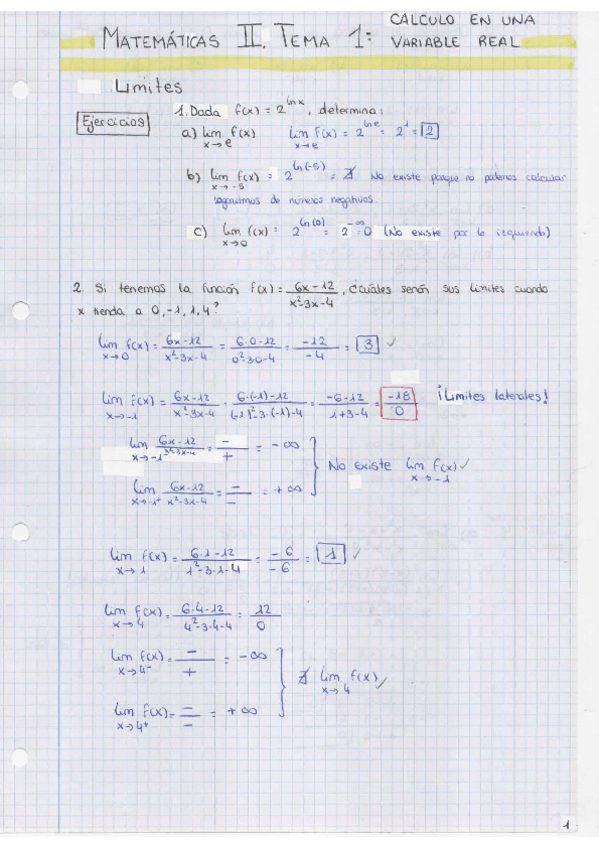 MATEMÁTICAS II. TEMA 1: CALCULO EN UNA VARIABLE REAL
Límites
Ejercicios
1. Dada f(x) = 2^(ln x), determina:
a) lim x→e f(x) lim x→e f(x) = 2^(ln e) = 2^1 = 2
b) lim x→-5 f(x) = 2^(ln(-5)) = ∄ No existe porque no podemos calcular
logaritmos de números negativos.
c) lim x→0 f(x) = 2^(ln(0)) = 2^(-∞) = 0 (No existe por la izquierda)
2. Si tenemos la función f(x) = (6x-12)/(x²-3x-4), ¿cuáles serán sus límites cuando
x tienda a 0, -1, 1, 4?
lim x→0 f(x) = (6x-12)/(x²-3x-4) = (6·0-12)/(0²-3·0-4) = (-12)/(-4) = 3 ✓
lim x→-1 f(x) = (6x-12)/(x²-3x-4) = (6·(-1)-12)/((-1)²-3·(-1)-4) = (-6-12)/(1+3-4) = (-18)/0 ¡Límites laterales!
lim x→-1⁻ (6x-12)/(x²-3x-4) = -/+ = -∞
No existe lim x→-1 f(x) ✓
lim x→-1⁺ (6x-12)/(x²-3x-4) = -/- = +∞
lim x→1 f(x) = (6·1-12)/(1²-3·1-4) = (-6)/(-6) = 1 ✓
lim x→4 f(x) = (6·4-12)/(4²-3·4-4) = 12/0
lim x→4⁻ f(x) = -/+ = -∞
∄ lim x→4 f(x) ✓
lim x→4⁺ f(x) = -/- = +∞
1